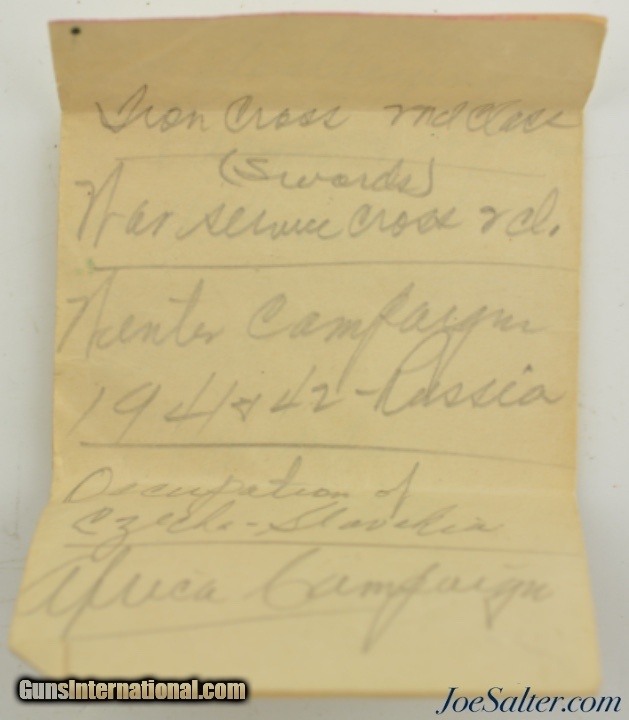 Iron Cross 2nd Class
(Swords)
War service cross 2 cl.
Winter Campaign
1941 & 42 - Russia
Occupation of
Czecho-Slovakia
Africa Campaign
GunsInternational.com
JoeSalter.com